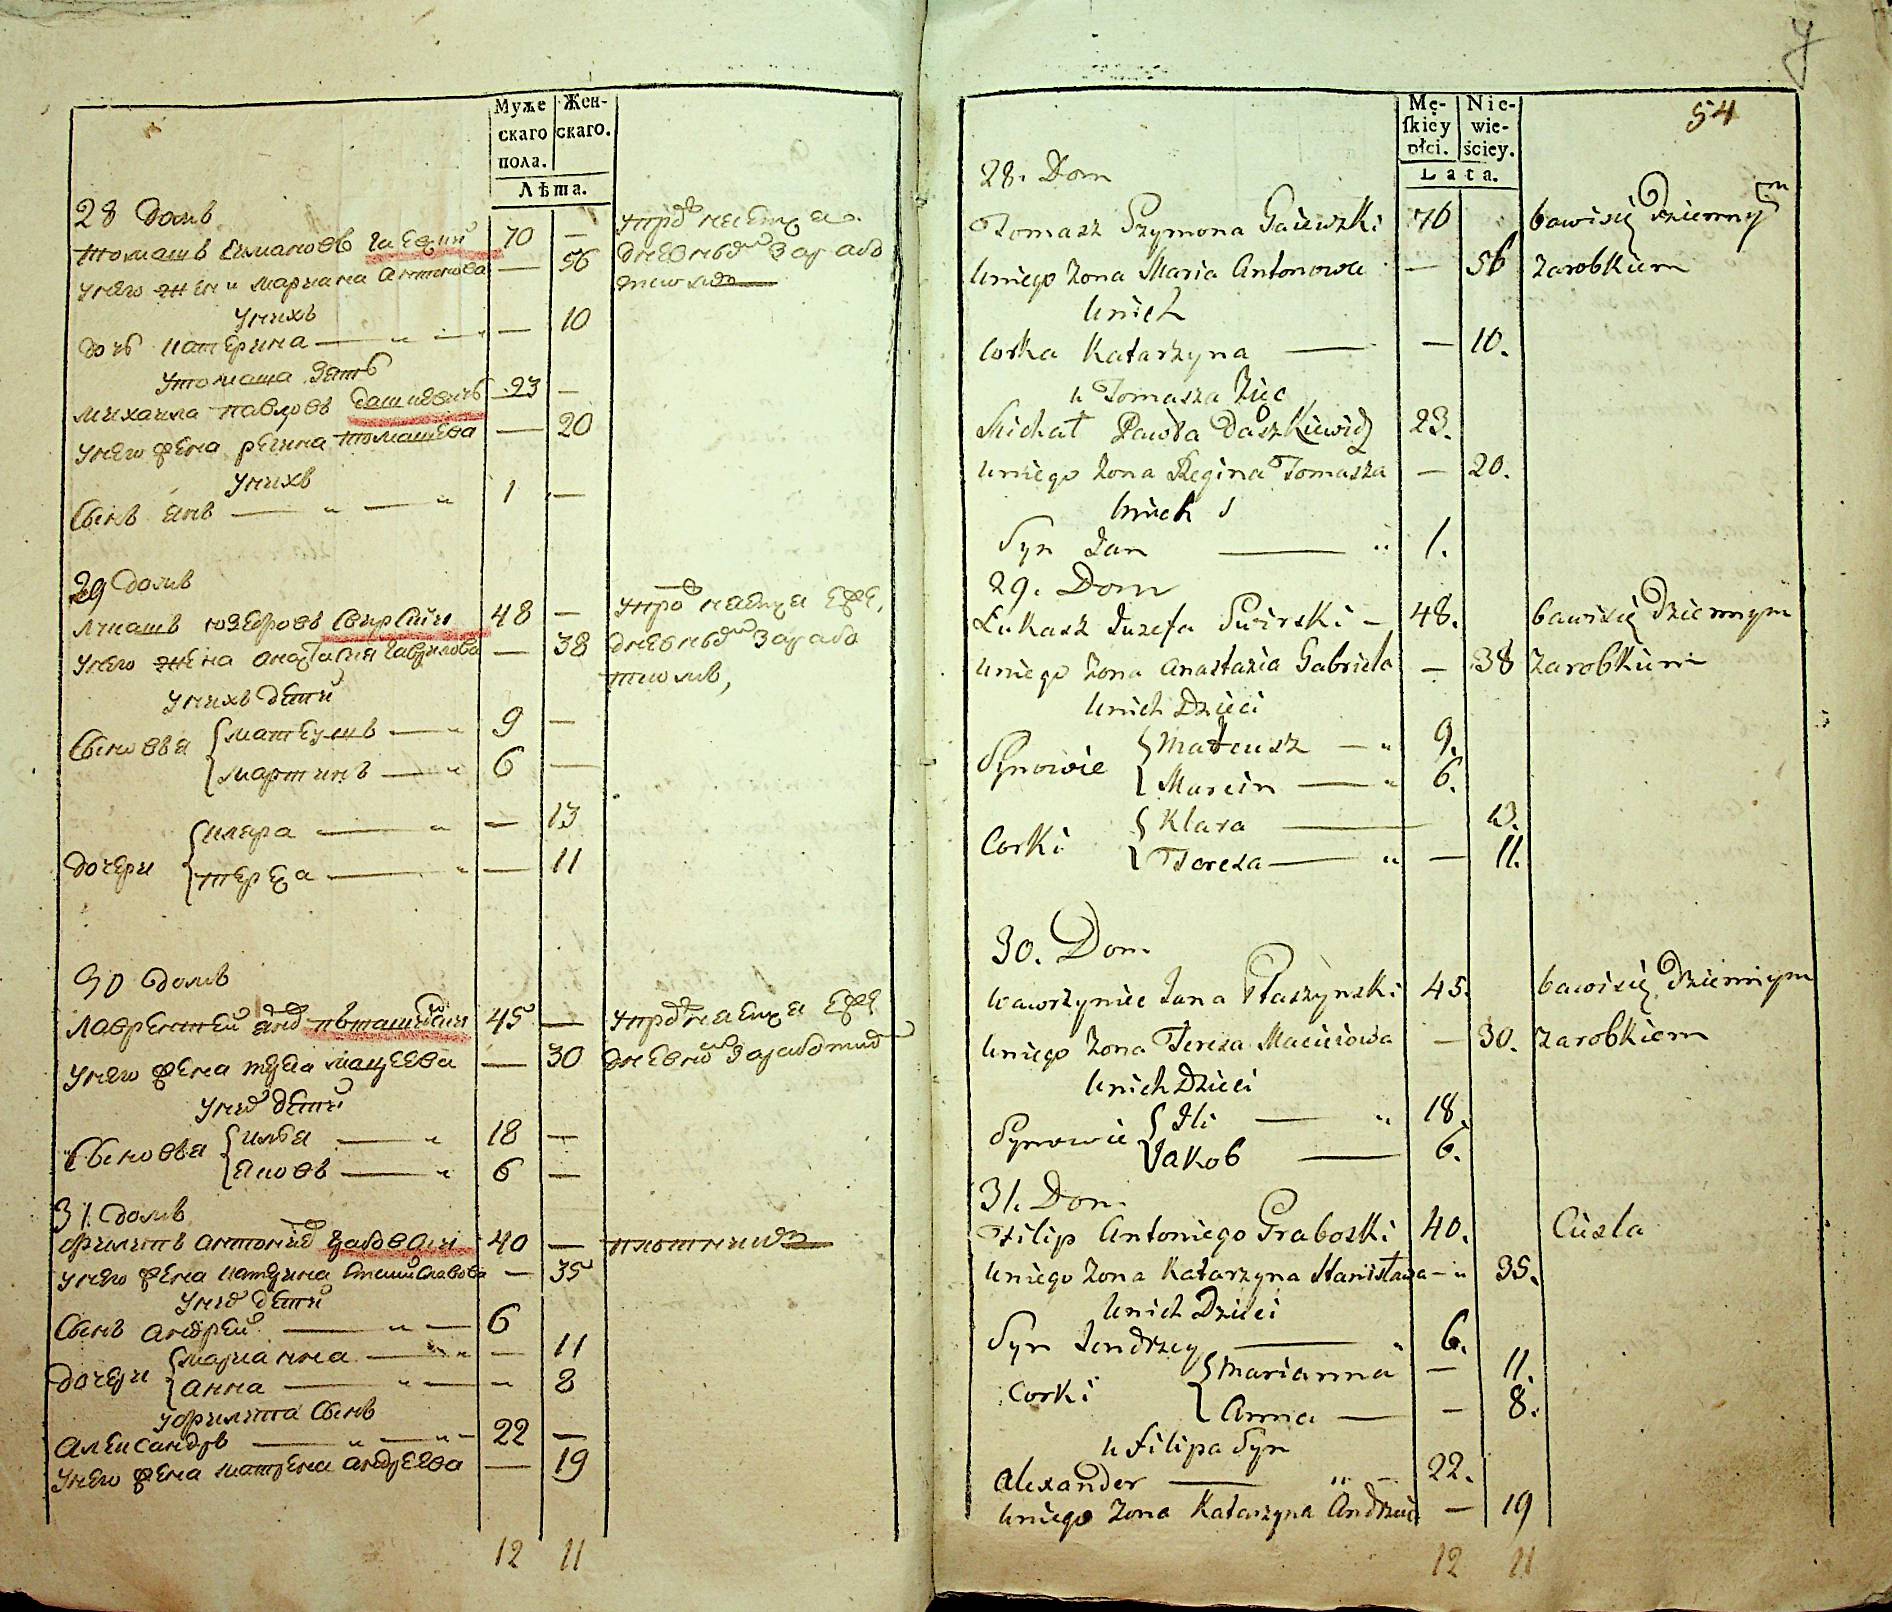 Муже
скаго
пола.
Жен-
скаго.
Лѣта.
28 домъ
Томашъ Симановъ Гаевский 70 —
у него жена Мариана Антонова — 56
у нихъ
дочь Катерина — „ — — 10
у Томаша зять
Михаила Павловъ Дашкевичъ 23 —
у него жена Регина Томашева — 20
у нихъ
Сынъ Янъ — „ — „ 1 —
29 домъ
Лукашъ Юзефовъ Свирский 48 —
у него жена Анастасия Гаврилова — 38
тковъ,
у нихъ дети
Сыновья { Матеушъ — „ 9 —
{ Мартинъ — „ 6 —
дочери { Клара — „ — 13
{ Тереза — „ — 11
30 домъ
Лаврентей Янов Пташинский 45 —
у него жена Тереза Мацеева — 30
у них дети
Сыновья { Илья — „ 18 —
{ Яковъ — „ 6 —
31 домъ
Филипъ Антонов Грабовский 40 — плотник
у него жена Катерина Станиславова — 35
у них дети
Сынъ Андрей — „ — 6
дочери { Марианна — „ — 11
{ Анна — „ — 8
у Филипа Сынъ
Александръ — „ — „ 22 —
у него жена Матрена Андреева — 19
12 11
54
Mę-
skiey
płci.
Nie-
wie-
ściey.
Lata.
28. Dom
Tomasz Szymona Gaiewski 70 bawisię Dziennym
Uniego Zona Maria Antonowa — 56 Zarobkiem
Unich
Corka Katarzyna — — 10.
u Tomasza Zięc
Michał Pawła Daszkiewicz 23.
Uniego Zona Regina Tomasza — 20.
Unich
Syn Jan — „ 1.
29. Dom
Łukasz Juzefa Swirski — 48. bawisię Dziennym
Uniego Zona Anastazia Gabriela — 38 Zarobkiem
Unich Dzieci
Synowie { Mateusz — „ 9.
{ Marcin — „ 6.
Corki { Klara — 13.
{ Tereza — „ — 11.
30. Dom
Wawrzyniec Jana Ptaszynski 45. bawisię Dziennym
Uniego Zona Tereza Macieiowa — 30. Zarobkiem
Unich Dzieci
Synowie { Ili — „ 18.
{ Jakob — 6.
31. Dom
Filip Antoniego Graboski 40. Ciesla
Uniego Zona Katarzyna Stanisława — „ 35.
Unich Dzieci
Syn Jendrzey — „ 6.
Corki { Marianna — 11.
{ Anna — — 8.
u Filipa Syn
Alexander — „ — 22.
Uniego Zona Katarzyna — 19
12 11